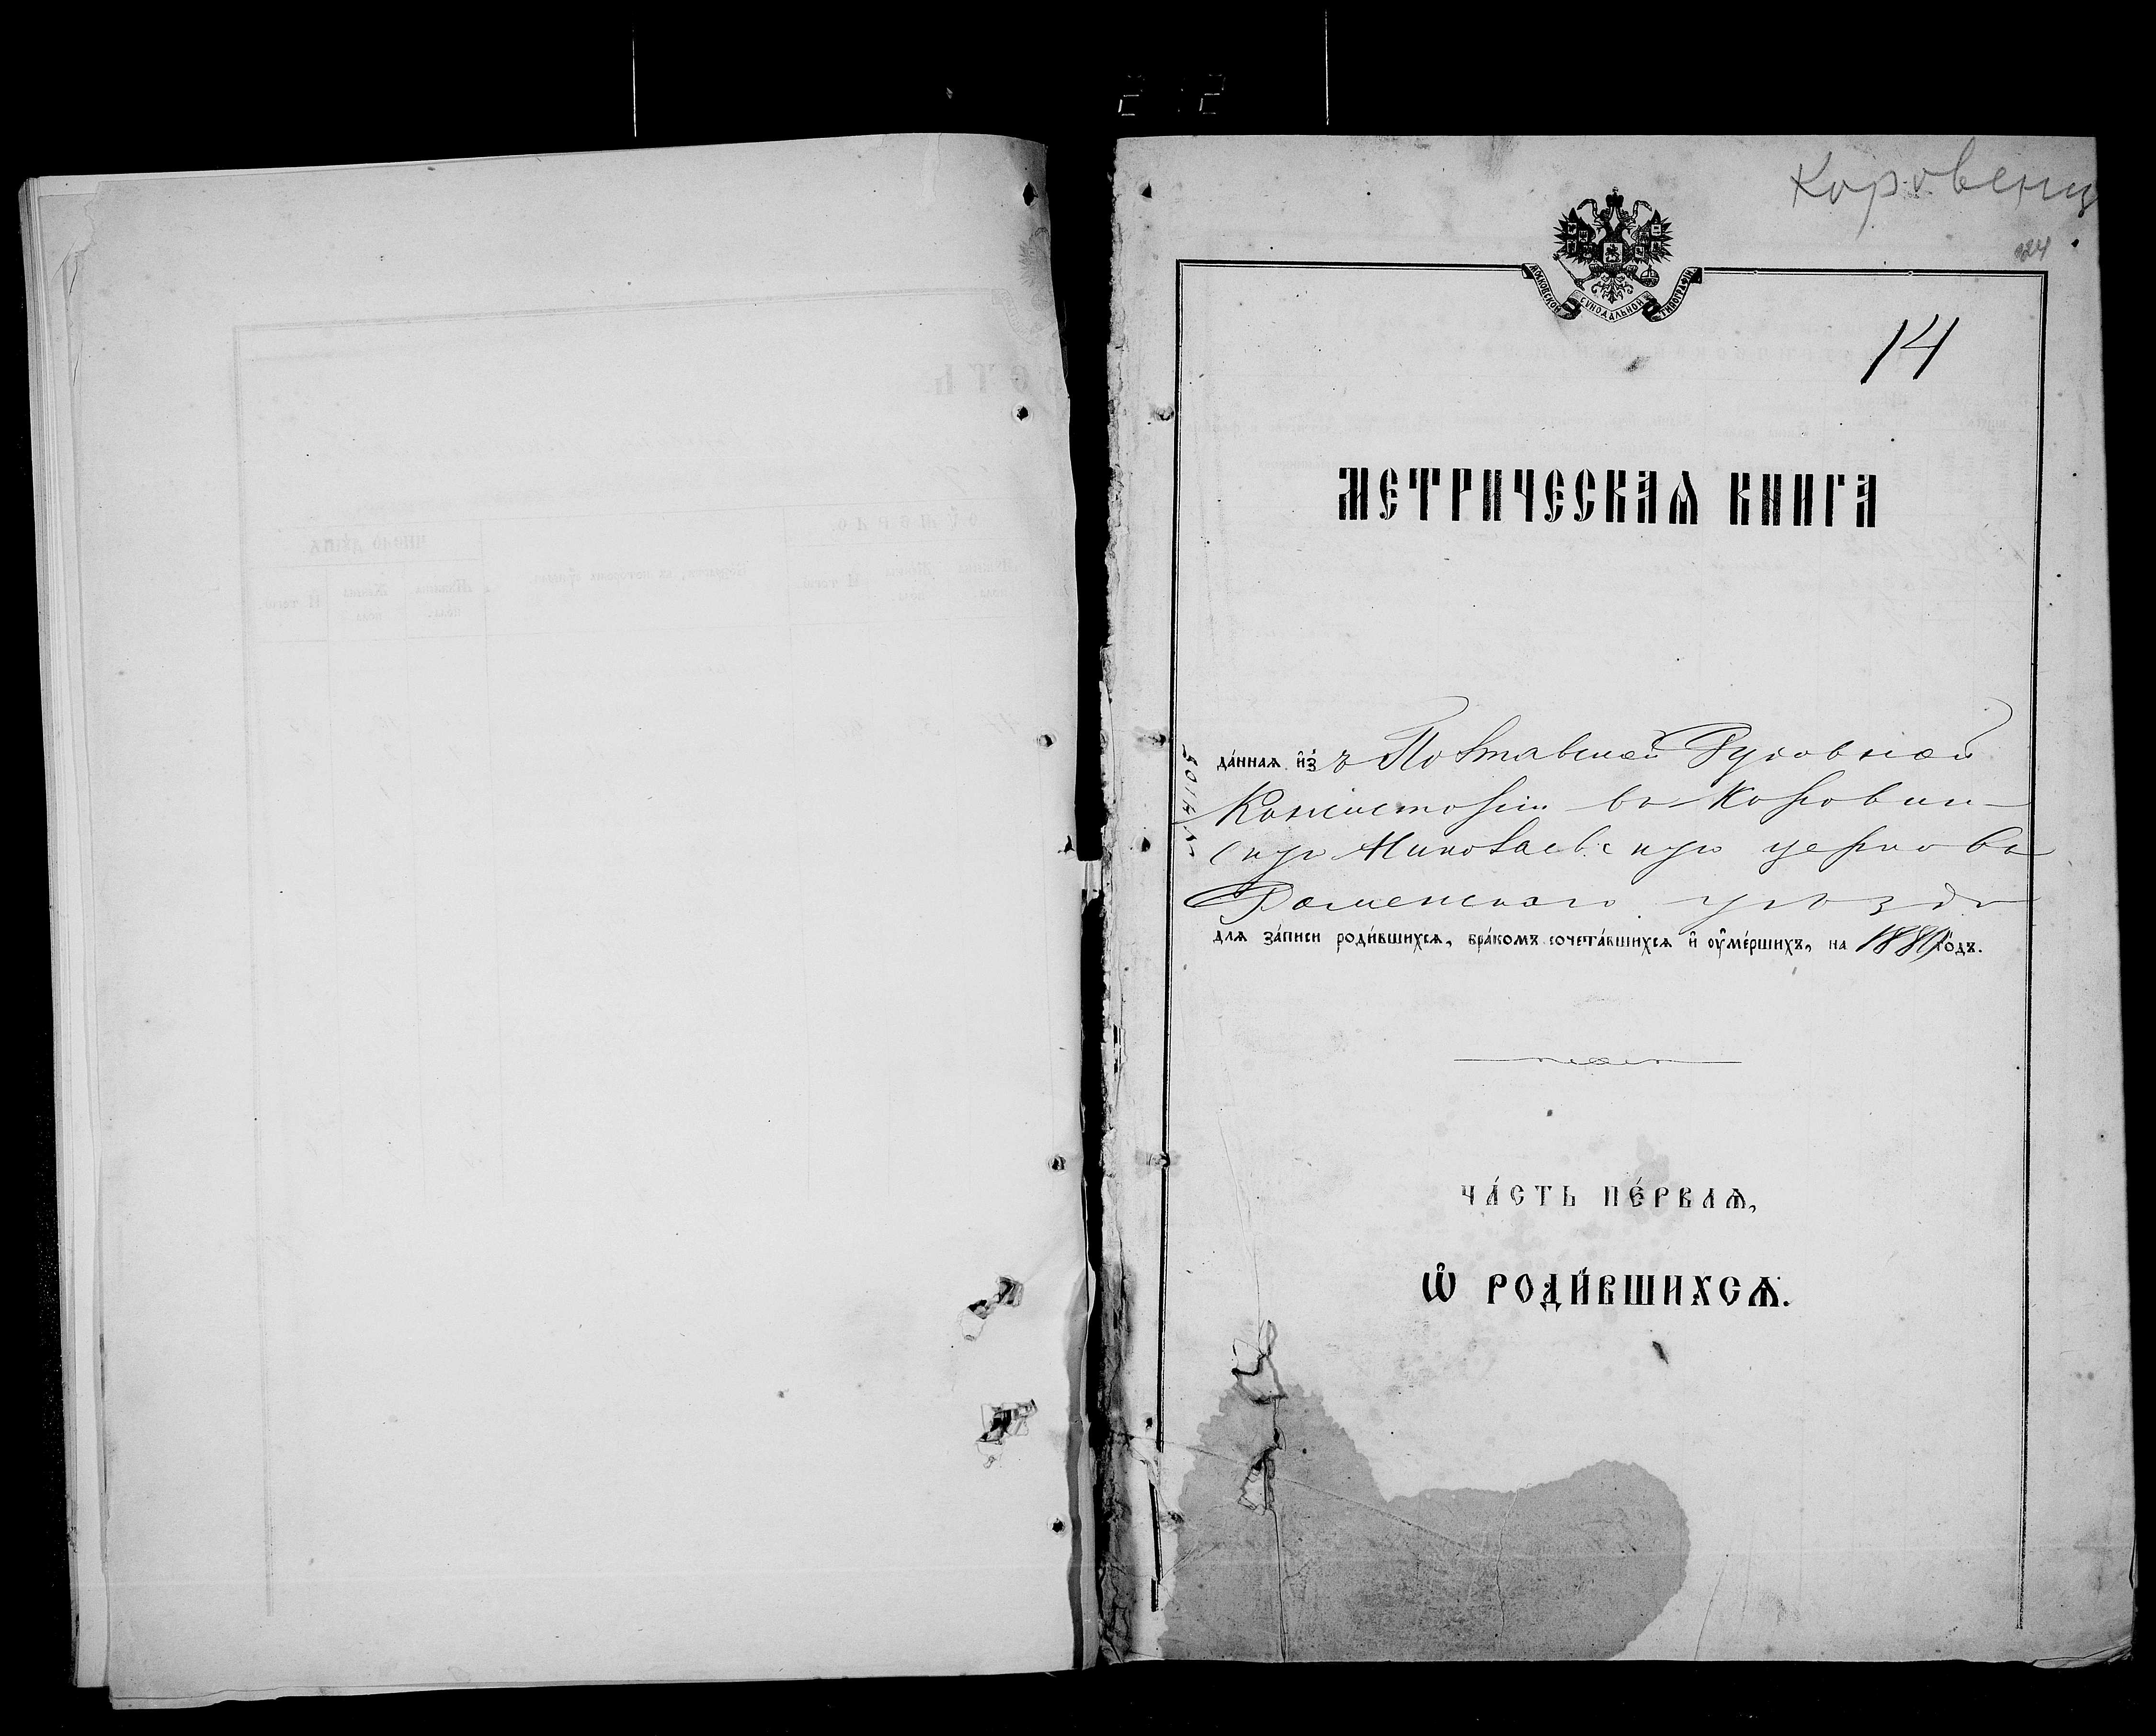 2 2
Коровенц
124
МОСКОВСКОЙ СУНОДАЛЬНОЙ ТИПОГРАФІИ
14
МЕТРИЧЕСКАѦ КНИГА
да́ннаѧ и҆́з ъ Полтавской Духовной
Консисторіи въ Коровин-
скую Николаевскую церковь
Роменскаго уѣзда
длѧ за́писи роди́вшихсѧ, бра́комъ сочета́вшихсѧ и҆ ᲂу҆ме́ршихъ, на 1889 го́дъ.
ЧА́СТЬ ПЕ́РВАѦ,
Ѡ҆ РОДИ́ВШИХСѦ.